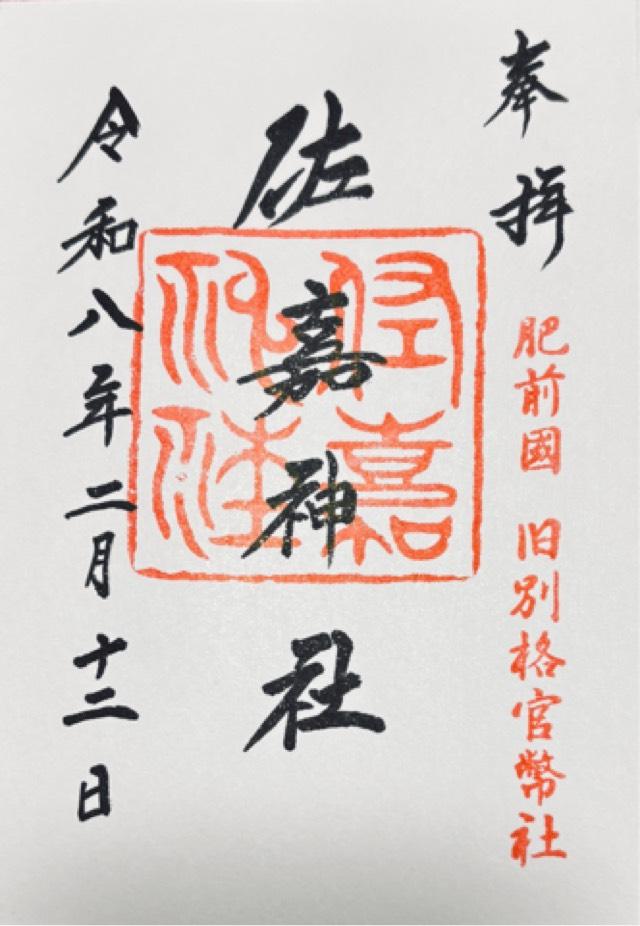 奉拝
肥前國 旧別格官幣社
佐嘉神社
佐嘉神社
令和八年二月十二日